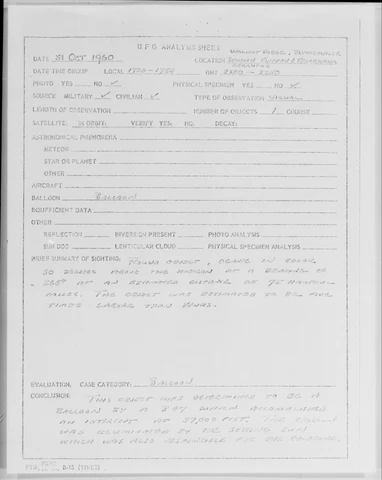 UFO ANALYSIS SHEET
DATE 31 OCT 1960 LOCATION
DATE TIME GROUP LOCAL GMT
PHOTO YES NO ✓ PHYSICAL SPECIMEN YES NO ✓
SOURCE MILITARY ✓ CIVILIAN ✓ TYPE OF OBSERVATION VISUAL
LENGTH OF OBSERVATION NUMBER OF OBJECTS 1 COURSE
SATELLITE: IN ORBIT: VERIFY YES: NO: DECAY:
ASTRONOMICAL PHENOMENA
METEOR
STAR OR PLANET
OTHER
AIRCRAFT
BALLOON BALLOON
INSUFFICIENT DATA
OTHER
REFLECTION INVERSION PRESENT PHOTO ANALYSIS
SUN DOG LENTICULAR CLOUD PHYSICAL SPECIMEN ANALYSIS
BRIEF SUMMARY OF SIGHTING: ROUND OBJECT, IN COLOR
30 DEGREES ABOVE THE HORIZON AT A BEARING OF
AT AN ESTIMATED DISTANCE OF 75 NAUTICAL
MILES. THE OBJECT WAS ESTIMATED TO BE FIVE
TIMES LARGER THAN VENUS.
EVALUATION: CASE CATEGORY: BALLOON
CONCLUSION: THIS OBJECT WAS DETERMINED TO BE A
BALLOON BY A WHICH ACCOMPLISHED
AN INTERCEPT AT FEET. THE BALLOON
WAS ILLUMINATED BY THE SETTING SUN
WHICH WAS ALSO RESPONSIBLE FOR THE